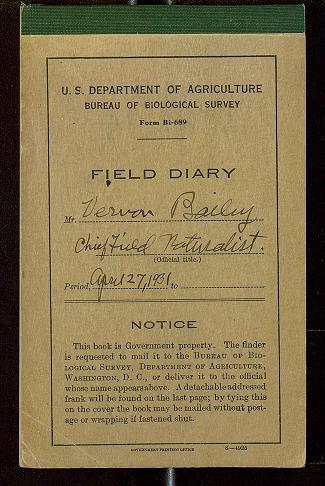 U. S. DEPARTMENT OF AGRICULTURE
BUREAU OF BIOLOGICAL SURVEY
Form Bi-689
FIELD DIARY
Mr. Vernon Bailey
Chief Field Naturalist.
(Official title.)
Period, April 27, 1931 to
NOTICE
This book is Government property. The finder
is requested to mail it to the BUREAU OF BIO-
LOGICAL SURVEY, DEPARTMENT OF AGRICULTURE,
WASHINGTON, D. C., or deliver it to the official
whose name appears above. A detachable addressed
frank will be found on the last page; by tying this
on the cover the book may be mailed without post-
age or wrapping if fastened shut.
GOVERNMENT PRINTING OFFICE 8—4928